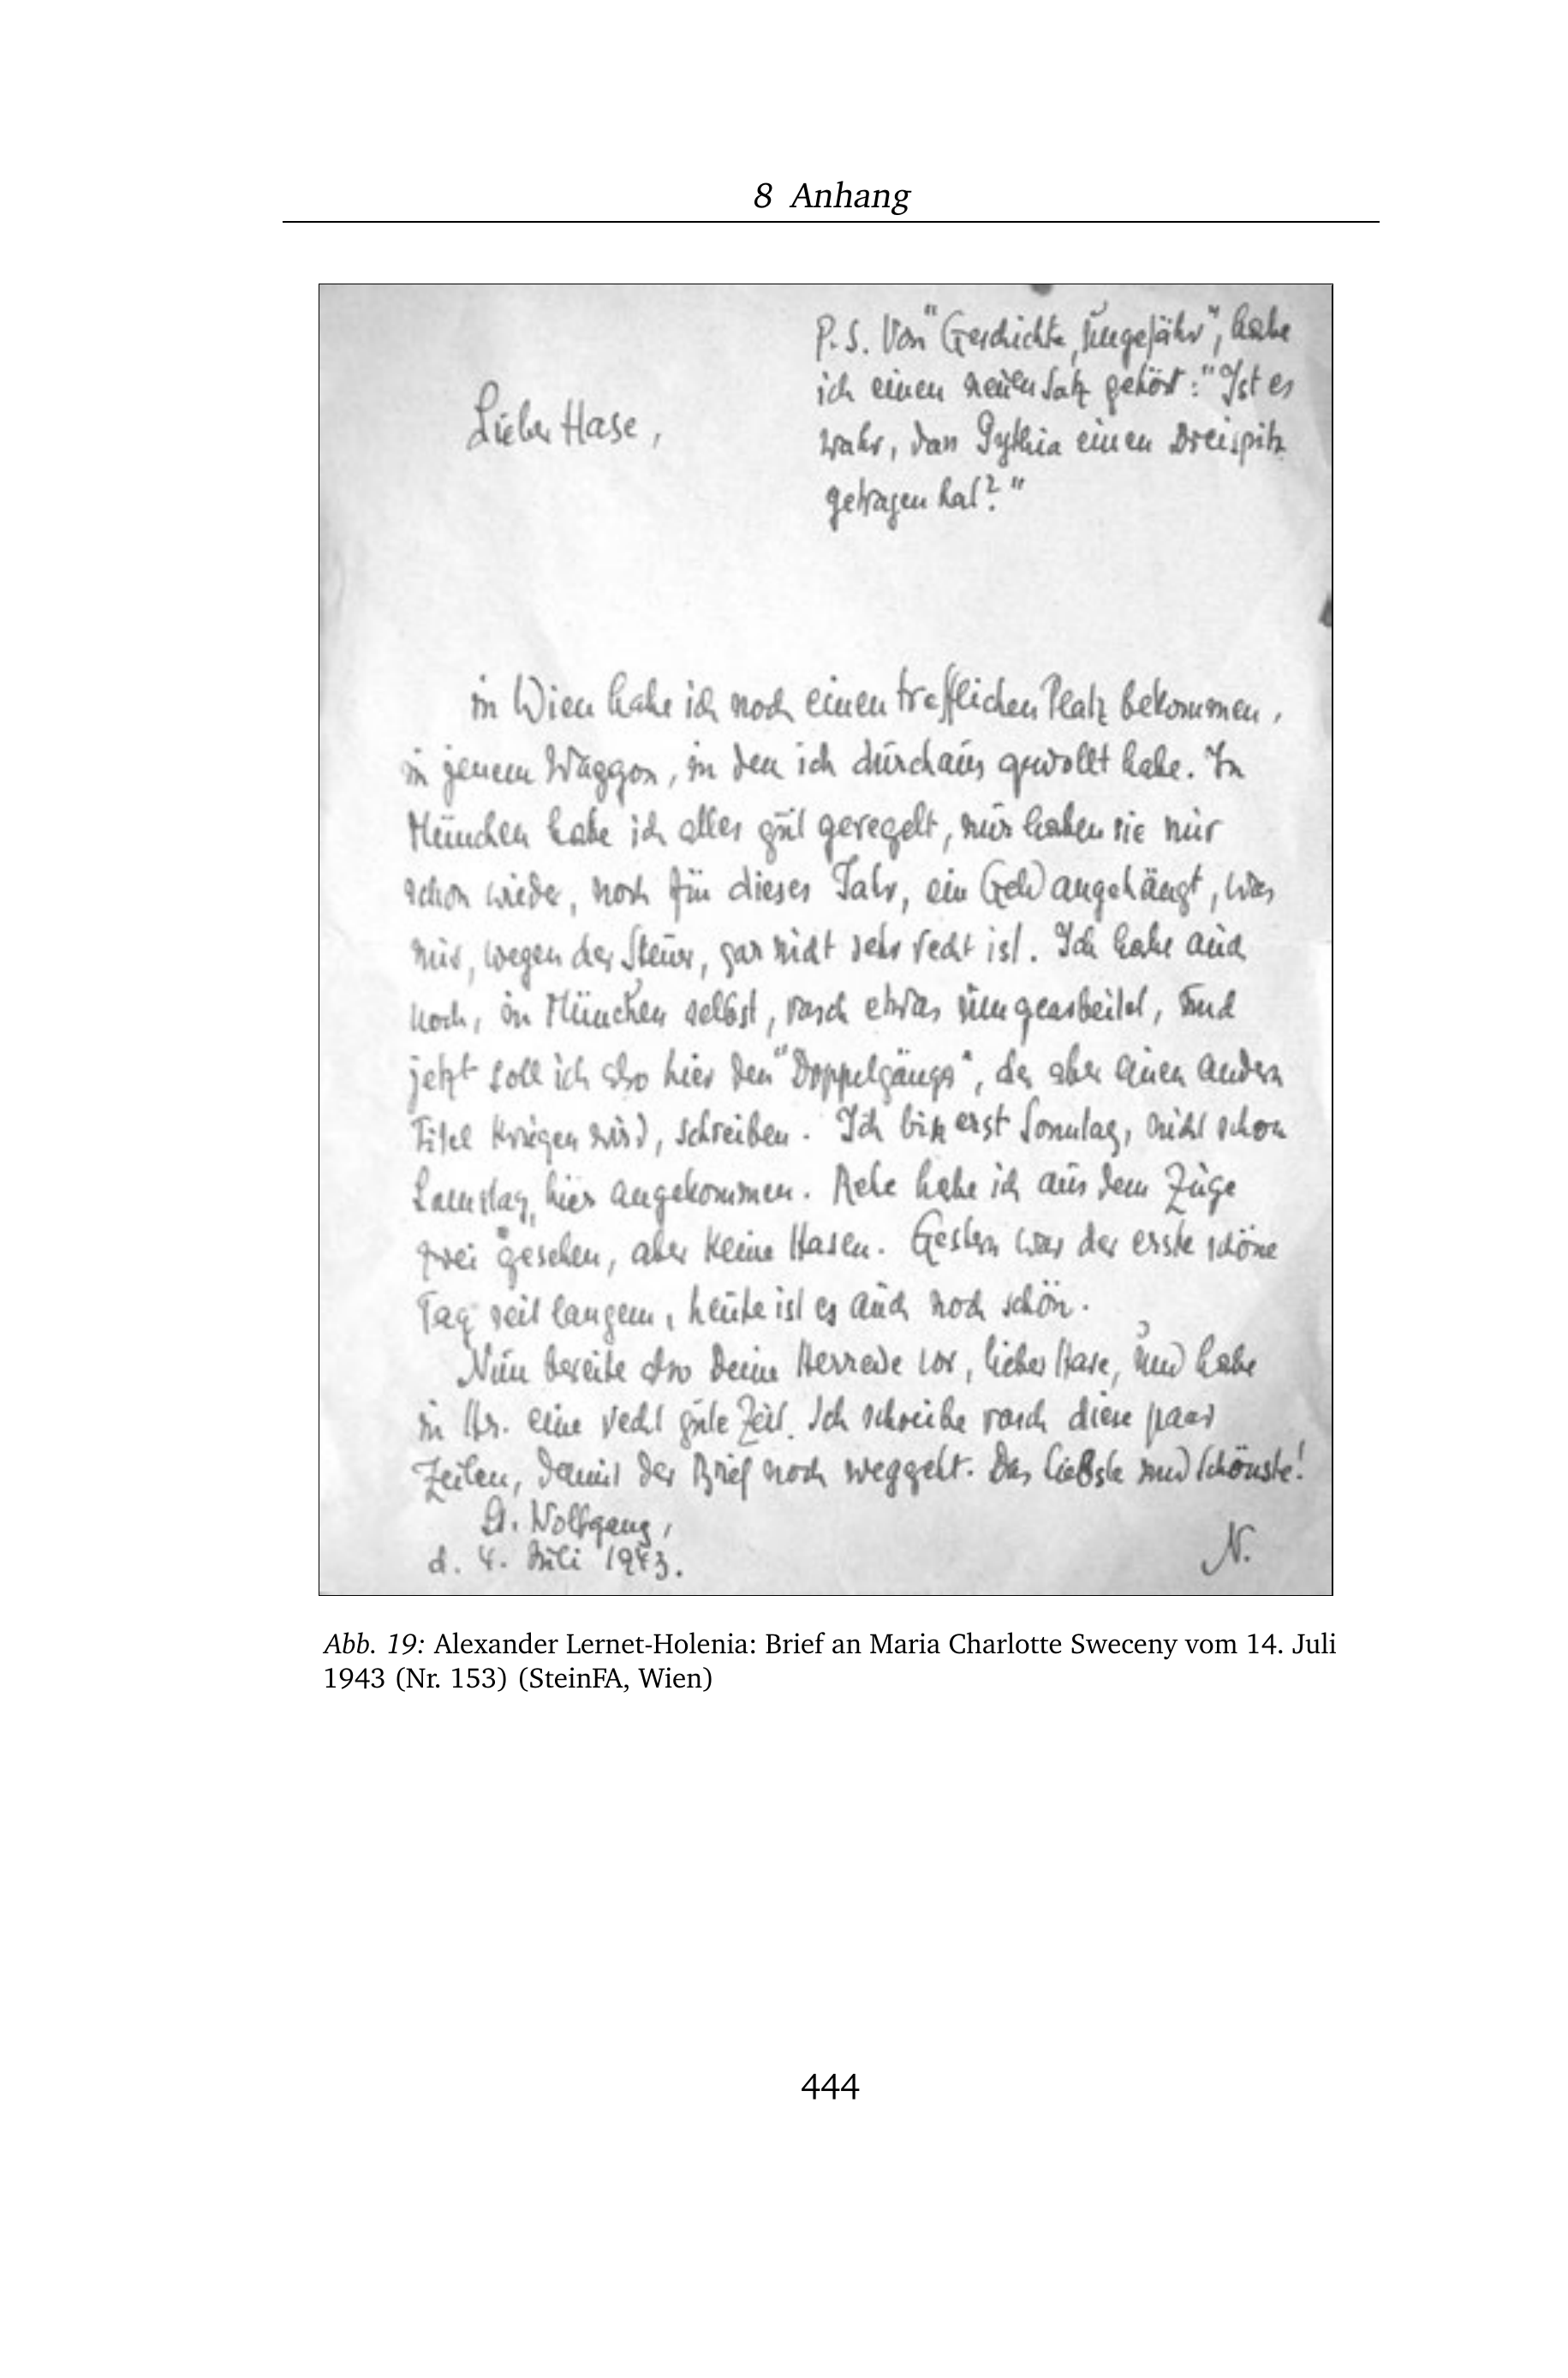 8 Anhang
P. S. Von "Geschichte, ungefähr", habe
ich einen neuen Satz gehört: "Ist es
wahr, dass Pythia einen Dreispitz
getragen hat?"
Lieber Hase,
in Wien habe ich noch einen trefflichen Platz bekommen,
in jenem Waggon, in den ich durchaus gewollt habe. In
München habe ich alles gut geregelt, nur haben sie mir
schon wieder, noch für dieses Jahr, ein Geld angehängt, was
mir, wegen der Steuer, gar nicht sehr recht ist. Ich habe auch
noch, in München selbst, rasch etwas umgearbeitet, und
jetzt soll ich also hier den "Doppelgänger", der aber einen andern
Titel kriegen wird, schreiben. Ich bin erst Sonntag, nicht schon
Samstag, hier angekommen. Rehe habe ich aus dem Zuge
zwei gesehen, aber keine Hasen. Gestern war der erste schöne
Tag seit langem, heute ist es auch noch schön.
Nun bereite also Deine Herreise vor, lieber Hase, und habe
in eine recht gute Zeit. Ich schreibe rasch diese paar
Zeilen, damit der Brief noch weggeht. Das Liebste und Schönste!
St. Wolfgang,
d. 4. Juli 1943.
N.
Abb. 19: Alexander Lernet-Holenia: Brief an Maria Charlotte Sweceny vom 14. Juli
1943 (Nr. 153) (SteinFA, Wien)
444